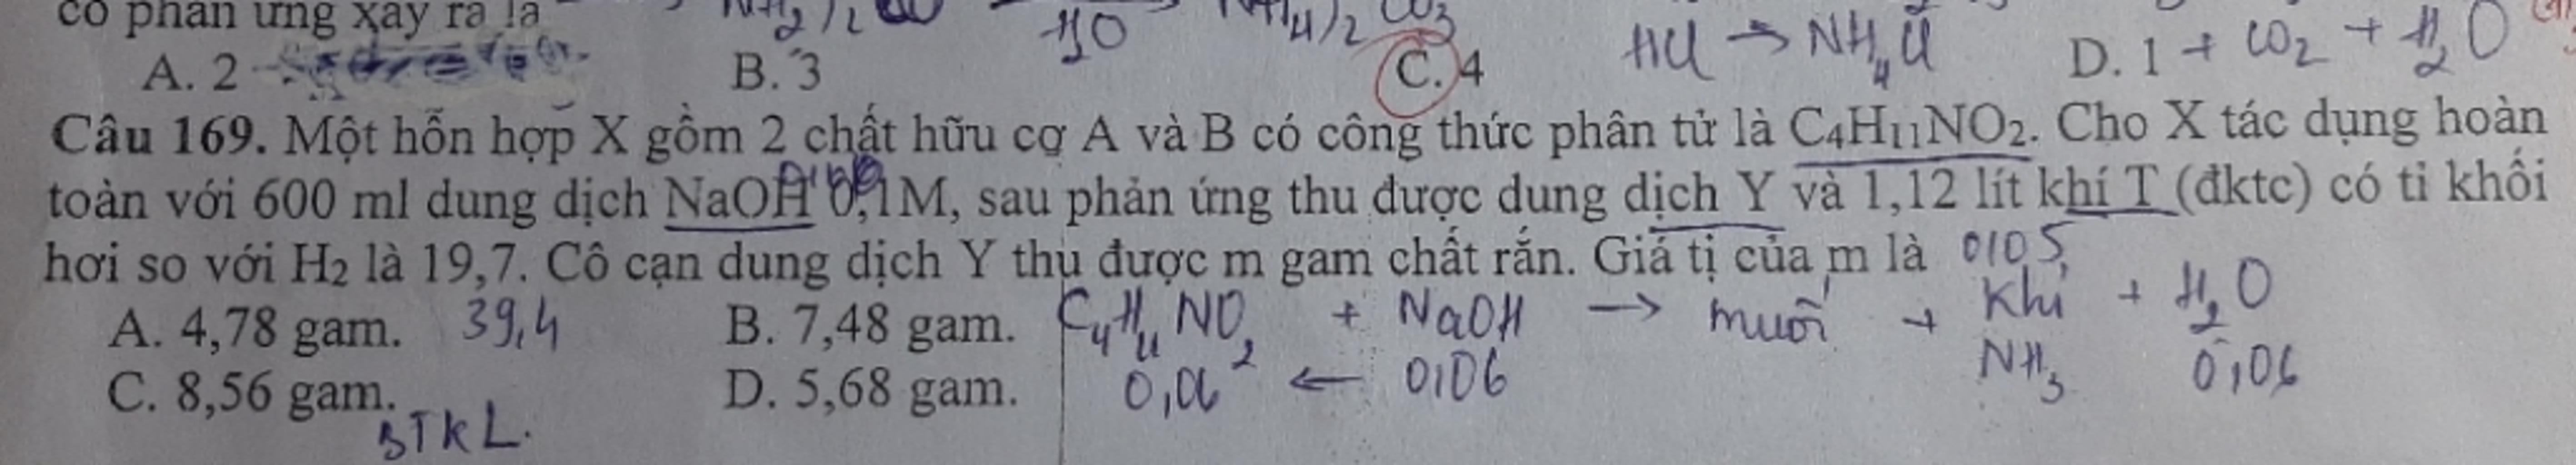 có phản ứng xảy ra là
H2O
A. 2 B. 3 C. 4 HCl → NH4Cl D. 1 + CO2 + H2O
Câu 169. Một hỗn hợp X gồm 2 chất hữu cơ A và B có công thức phân tử là C4H11NO2. Cho X tác dụng hoàn
toàn với 600 ml dung dịch NaOH 0,1M, sau phản ứng thu được dung dịch Y và 1,12 lít khí T (đktc) có tỉ khối
hơi so với H2 là 19,7. Cô cạn dung dịch Y thu được m gam chất rắn. Giá tị của m là 0,05
A. 4,78 gam. 39,4 B. 7,48 gam. C4H11NO2 + NaOH → muối + Khí + H2O
C. 8,56 gam. D. 5,68 gam. 0,06 ← 0,06 NH3 0,06
BTKL.